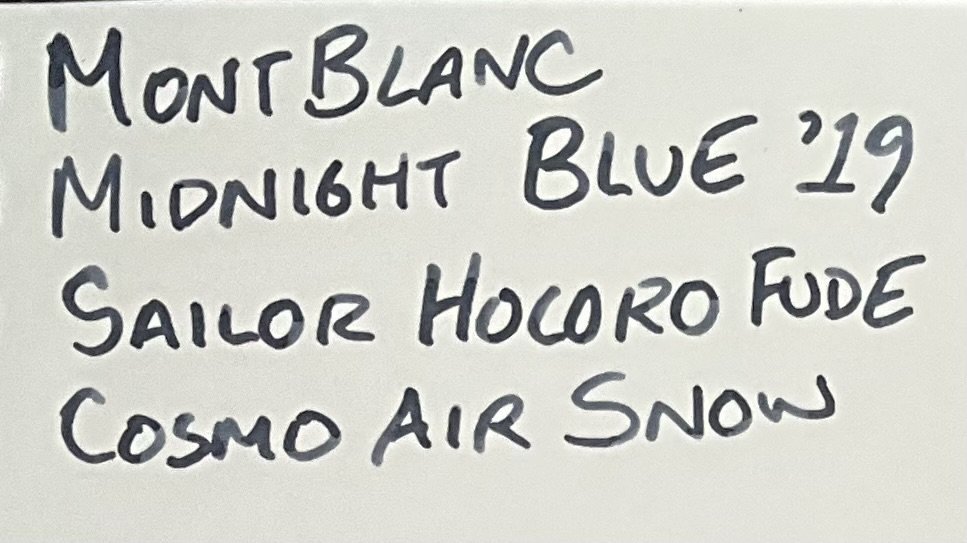 MONTBLANC
MIDNIGHT BLUE '19
SAILOR HOCORO FUDE
COSMO AIR SNOW